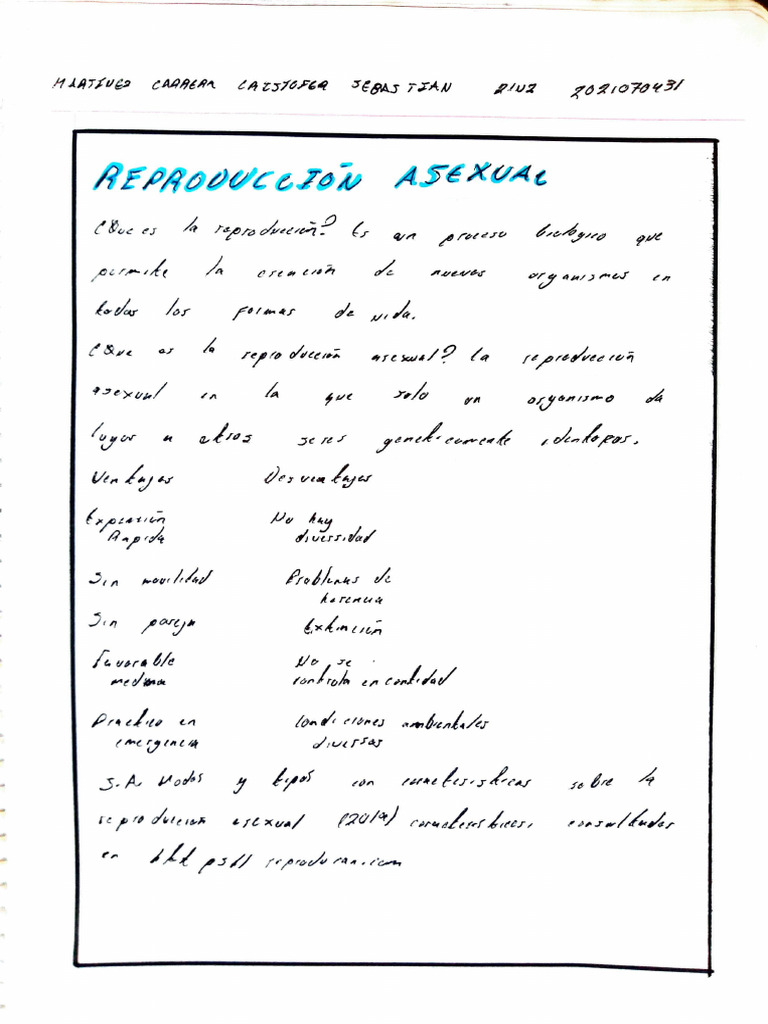 MARTINEZ CABRERA CRISTOFER SEBASTIAN 2021070431
REPRODUCCIÓN ASEXUAL
¿Que es la reproducción? Es un proceso biologico que
permite la creación de nuevos organismos en
todas las formas de vida.
¿Que es la reproducción asexual? La reproducción
asexual en la que solo un organismo da
lugar a otros seres geneticamente identicos.
Ventajas Desventajas
Expresión No hay
Rapida diversidad
Sin movilidad Problemas de
herencia
Sin pareja Extinción
Favorable No se
controla en cantidad
Practico en Condiciones ambientales
emergencia diversas
S.A. Modos y tipos con caracteristicas sobre la
reproducción asexual (2019) caracteristicas, consultado
en